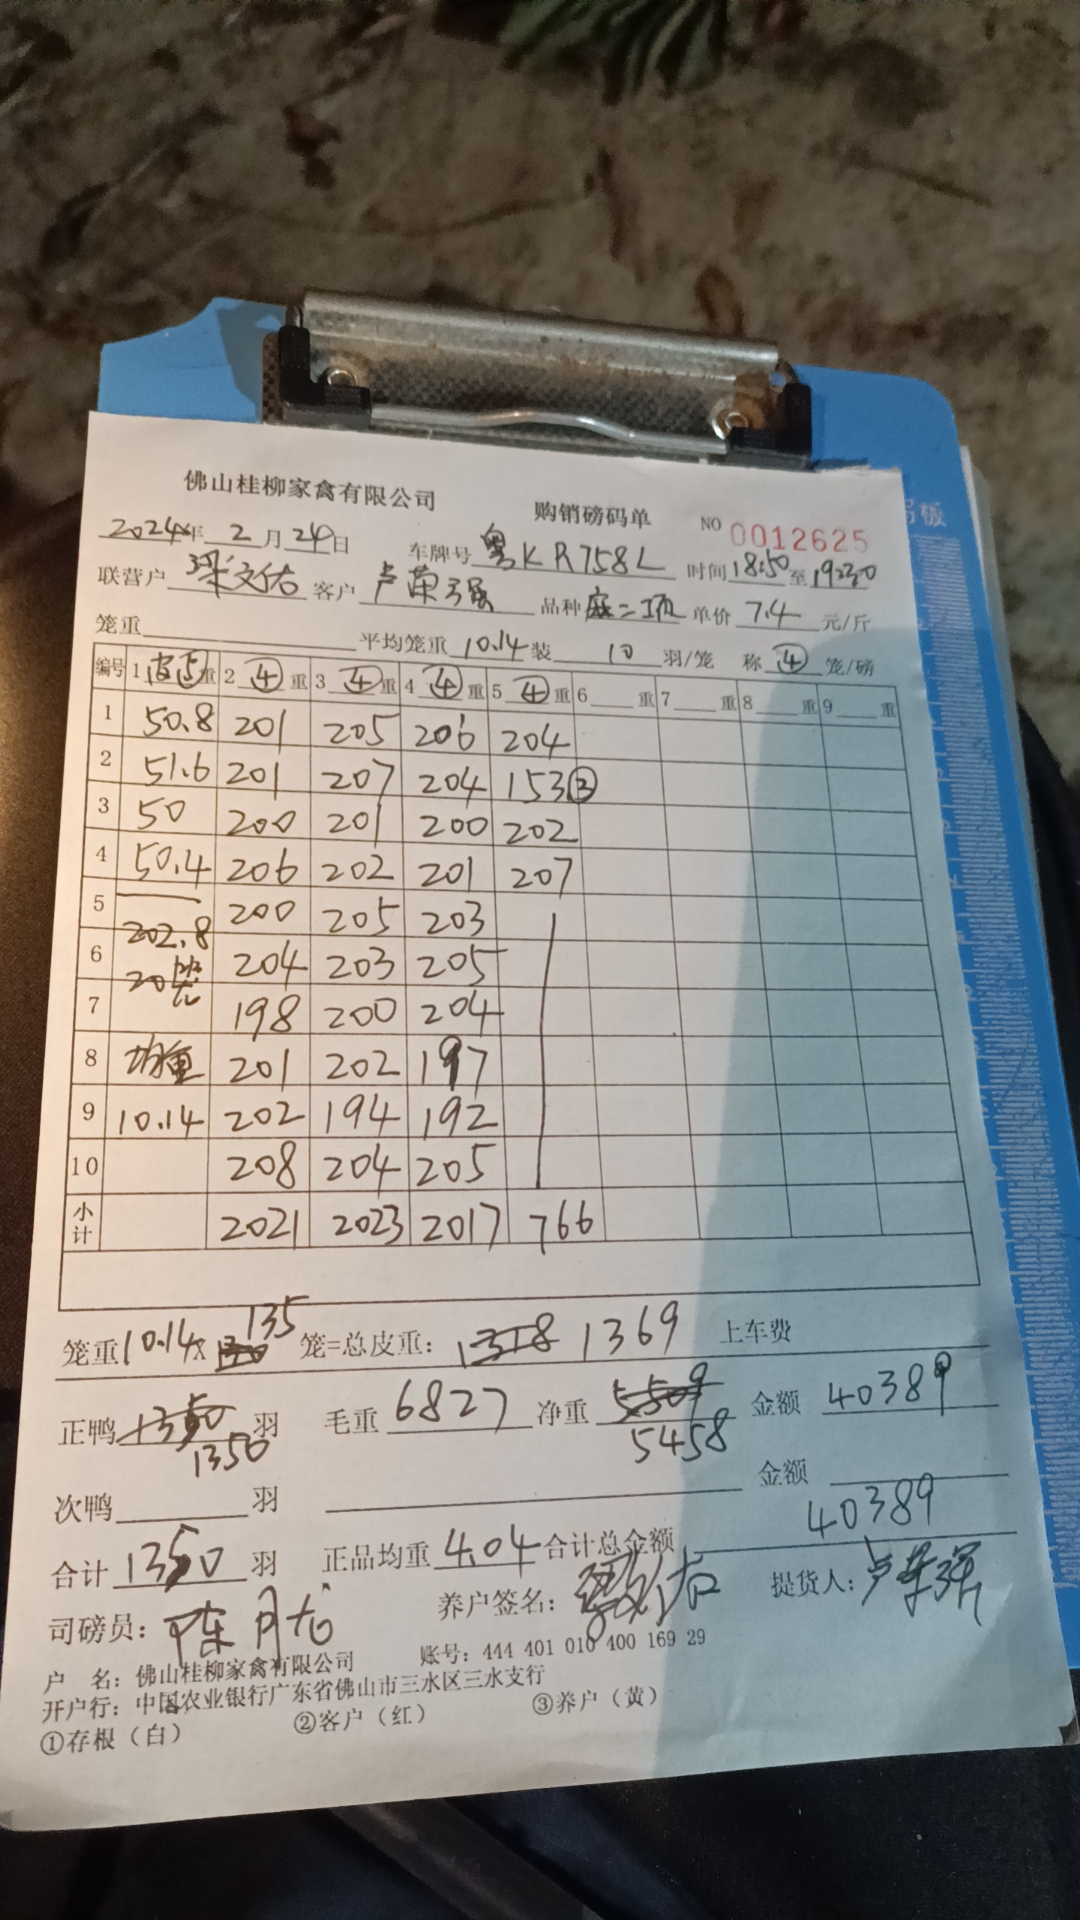 佛山桂柳家禽有限公司 购销磅码单 NO 0012625
2024年 2月24日 车牌号 粤KR758L 时间18:50至19:30
联营户 梁文佑 客户 卢荣强 品种 二项 单价 7.4 元/斤
笼重 平均笼重 10.14 装 10 羽/笼 称 ④ 笼/磅
编号 1 皮⑤重 2 ④ 重 3 ④ 重 4 ④ 重 5 ④ 重 6 重 7 重 8 重 9 重
1 50.8 201 205 206 204
2 51.6 201 207 204 153③
3 50 200 201 200 202
4 50.4 206 202 201 207
5 202.8 200 205 203
6 20笼 204 203 205
7 198 200 204
8 均重 201 202 197
9 10.14 202 194 192
10 208 204 205
小计 2021 2023 2017 766
笼重10.14X 135 笼=总皮重: 1318 1369 上车费
正鸭 1350 羽 毛重 6827 净重 5509 金额 40389
1350 5458
次鸭 羽 金额
合计 1350 羽 正品均重 4.04 合计总金额 40389
司磅员: 陈月 养户签名: 提货人: 卢荣强
户 名: 佛山桂柳家禽有限公司 账号: 444 401 010 400 169 29
开户行: 中国农业银行广东省佛山市三水区三水支行
①存根（白） ②客户（红） ③养户（黄）
写板